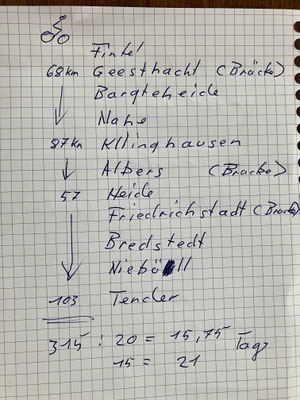 Fintel
68km Geesthacht (Brücke)
Bargteheide
Nahe
87km Kllinghausen
Albers (Brücke)
57 Heide
Friedrichstadt (Brücke)
Bredstedt
Niebüll
103 Tender
315 : 20 = 15,75 Tage
15 = 21